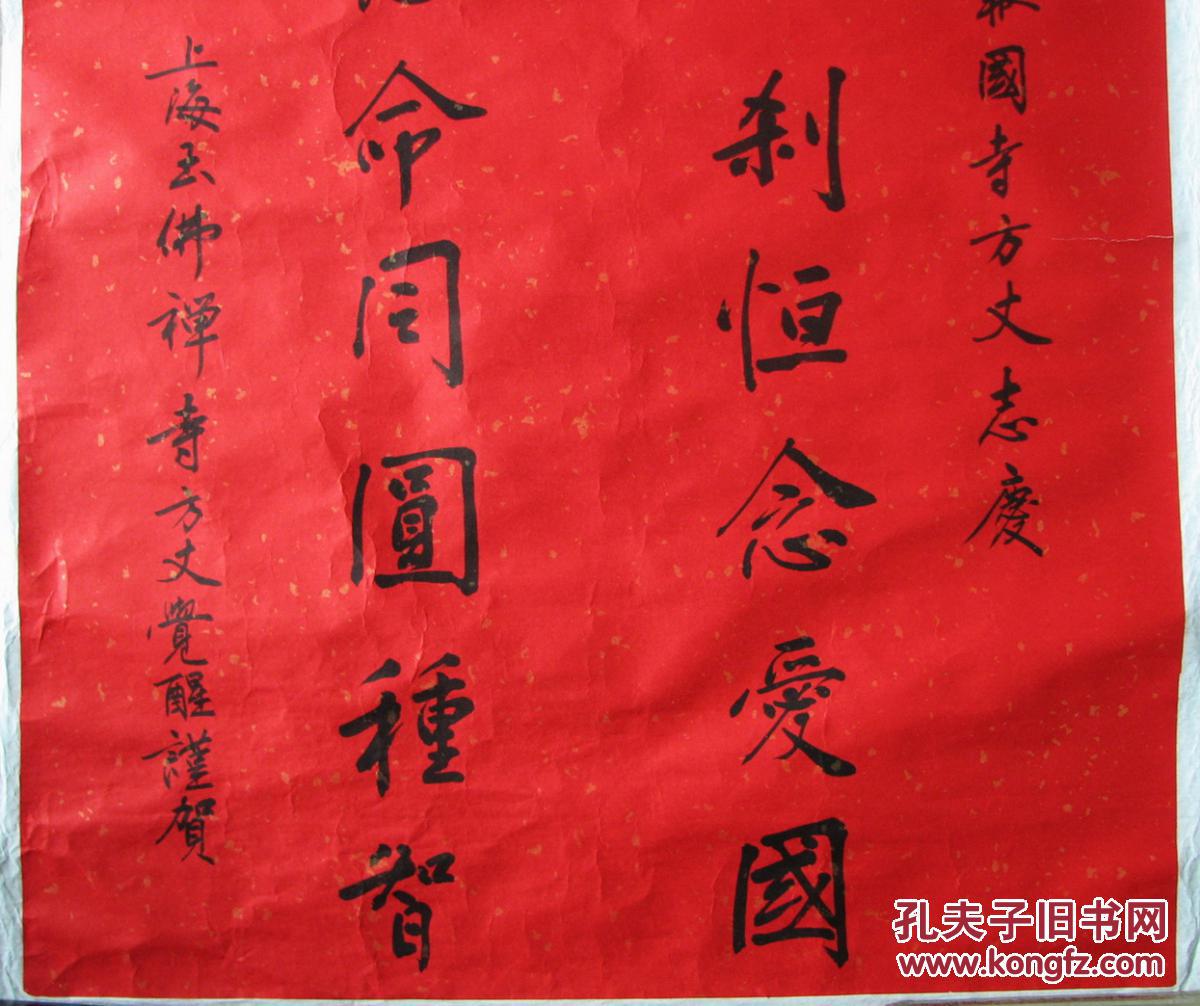 國寺方丈志慶
刹恒念愛國
命同圓種智
上海玉佛禅寺方丈覺醒謹賀
孔夫子旧书网
www.kongfz.com